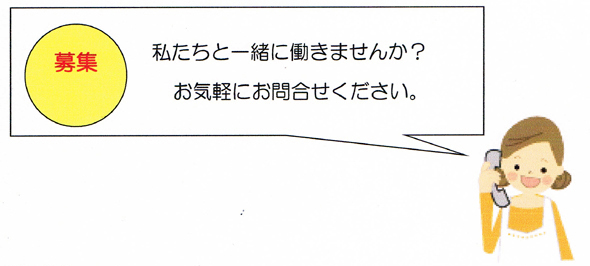 募集
私たちと一緒に働きませんか？
お気軽にお問合せください。